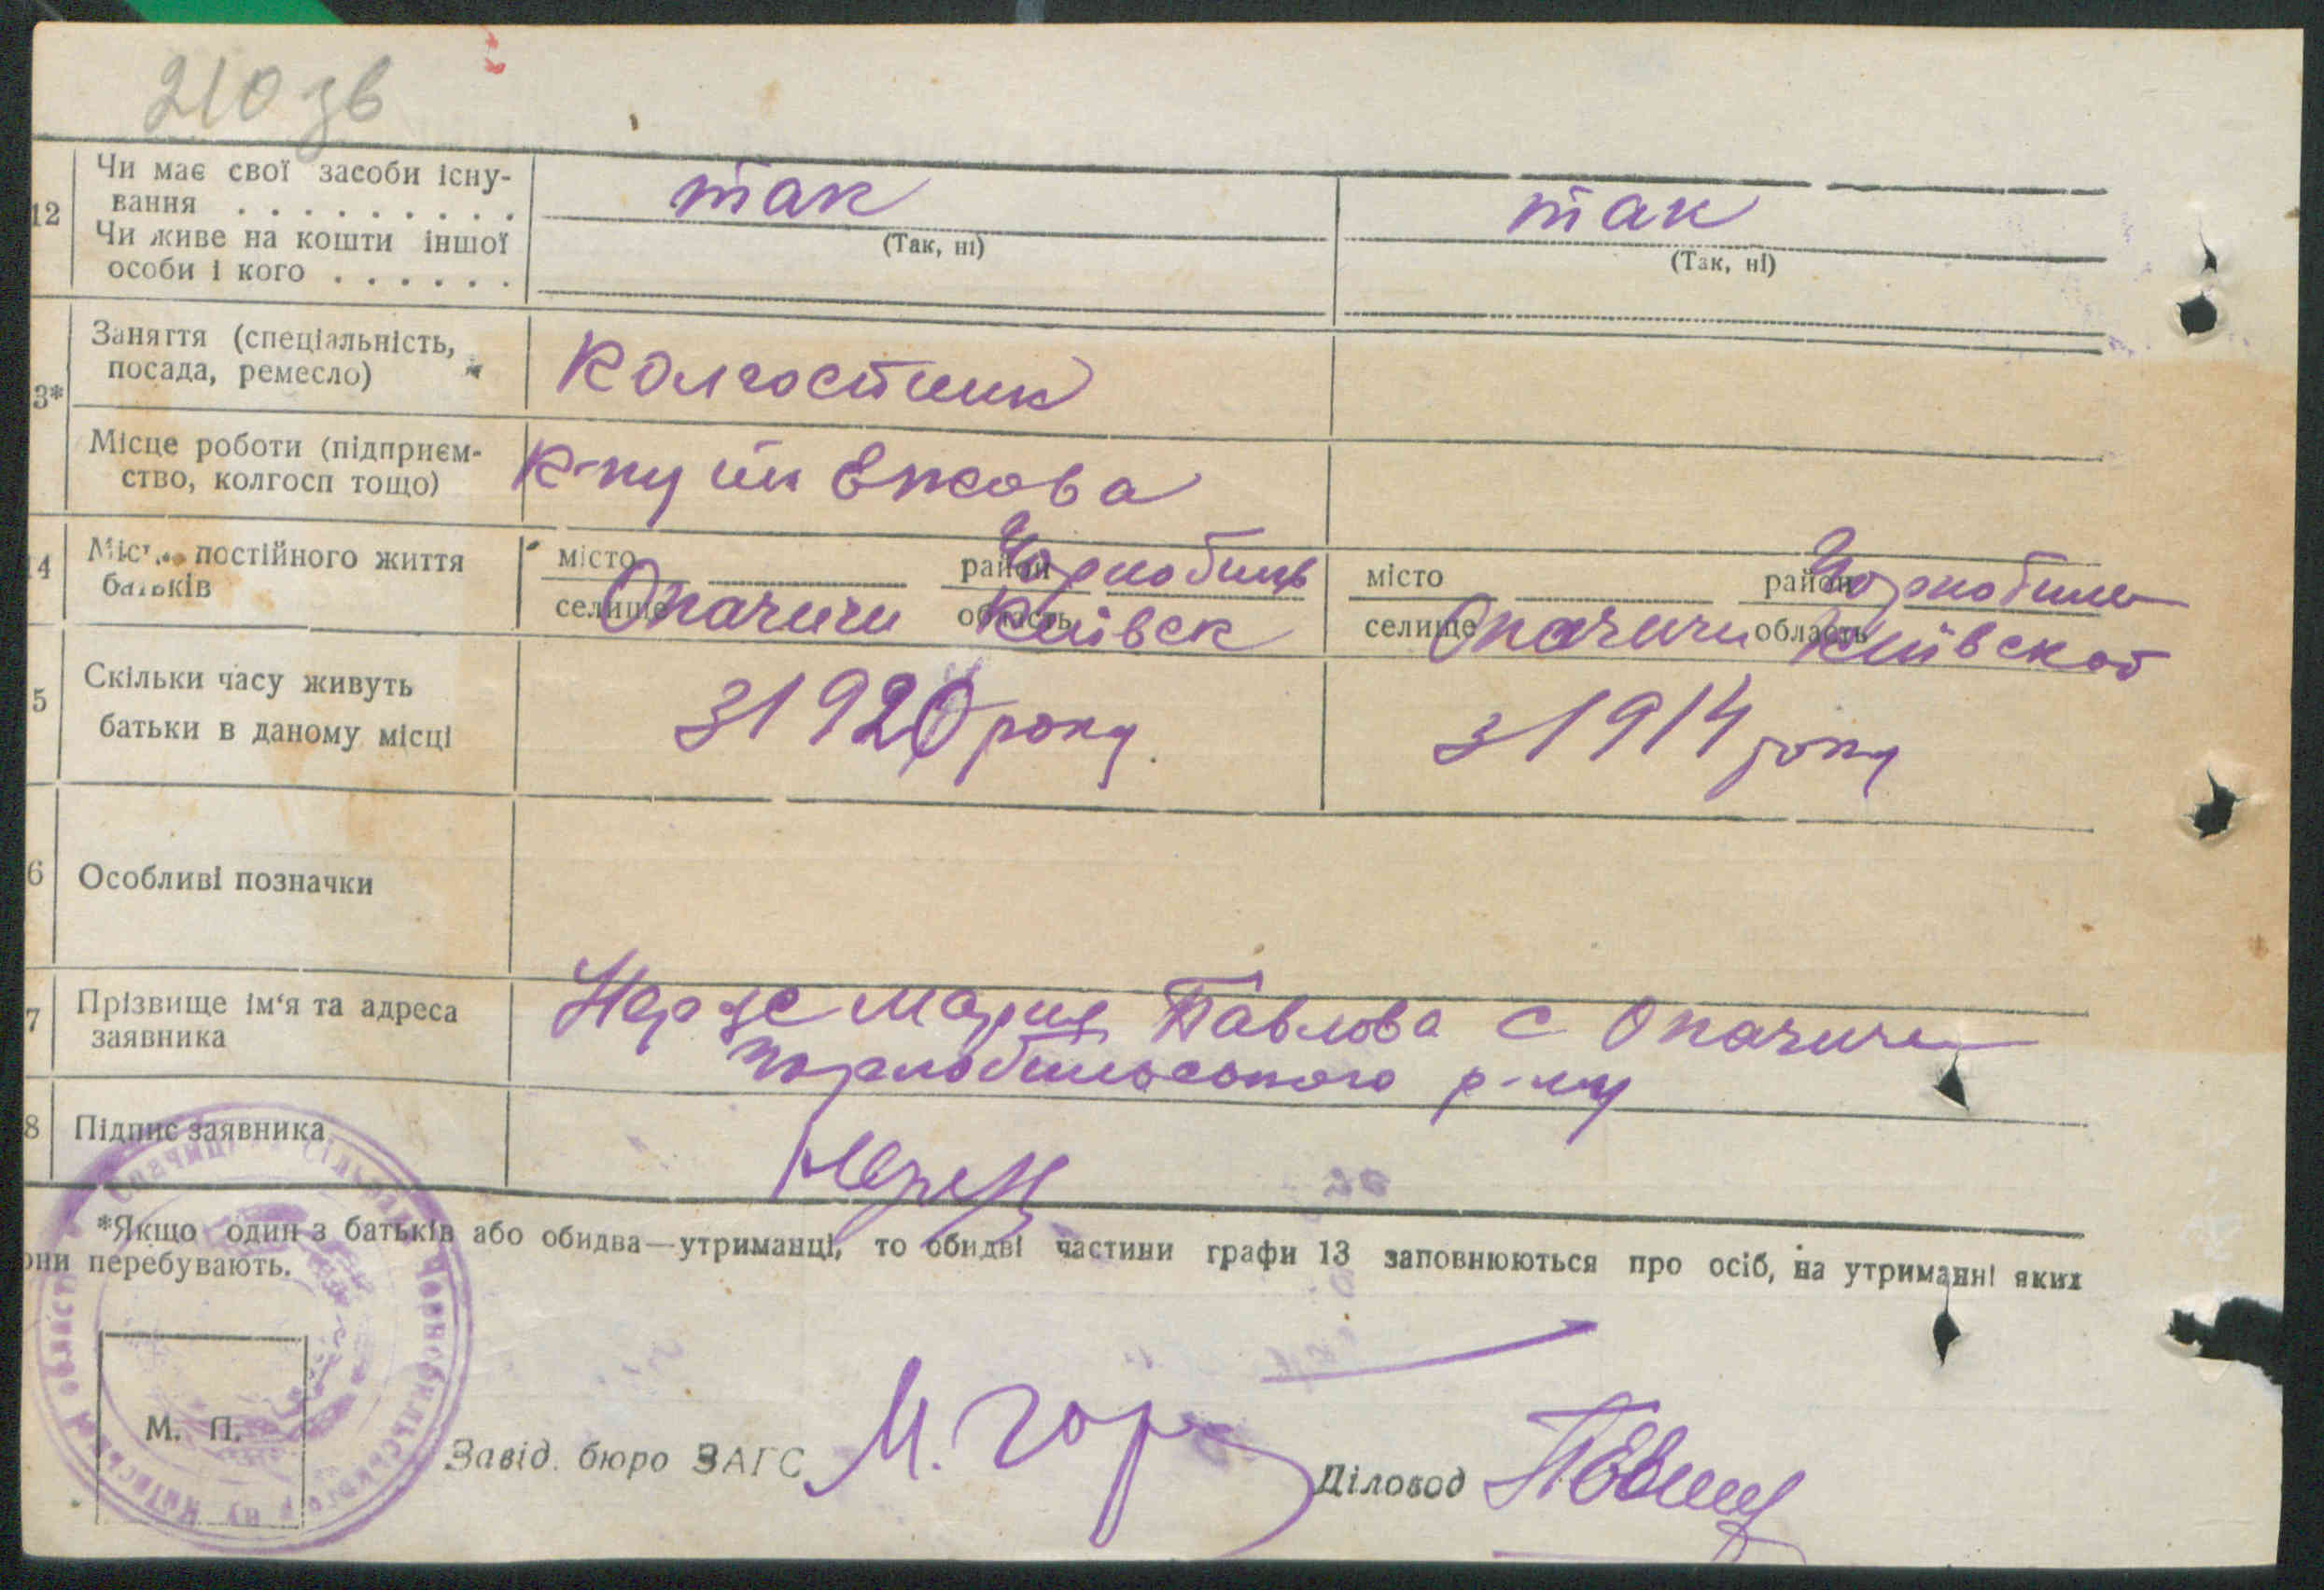 210 зв
12 Чи має свої засоби існу-
вання . . . . . . . . . . так так
(Так, ні) (Так, ні)
Чи живе на кошти іншої
особи і кого . . . . . .
3* Заняття (спеціальність,
посада, ремесло) Колгоспник
Місце роботи (підприєм-
ство, колгосп тощо) К-пу ім Ежова
4 постійного життя
батьків
місто район Чорнобиль місто район Чорнобил
селище Опачичи область Київск селище Опачичи область Київской
5 Скільки часу живуть
батьки в даному місці з 1920 року. з 1914 року
6 Особливі позначки
7 Прізвище ім‘я та адреса
заявника Мария Павлова с Опачичи
Чорнобильського р-ну
8 Підпис заявника
*Якщо один з батьків або обидва—утриманці, то обидві частини графи 13 заповнюються про осіб, на утриманні яких
они перебувають.
М. П.
Завід. бюро ЗАГС М. Гор Діловод